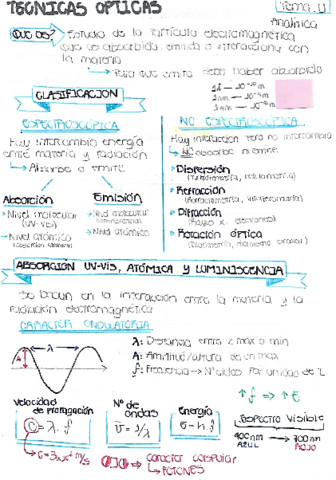 TECNICAS OPTICAS
Tema U
Analítica
QUE ES? Estudio de la partícula electromagnética
que es absorbida, emitida o interacciona con
la materia
Para que emita debe haber absorbido
1Å → 10⁻¹⁰ m
1nm → 10⁻⁹ m
CLASIFICACION
ESPECTROSCÓPICA
Hay intercambio energía
entre materia y radiación
Absorbe o emite
Absorción
Nivel molecular
(UV-vis)
Nivel atómico
Emisión
Nivel molecular
Nivel atómico
NO ESPECTROSCOPICA
Hay interacción pero no intercambio
NO absorbe ni emite
Dispersión
Refracción
Difracción
Rotación óptica
ABSORCIÓN UV-VIS, ATÓMICA Y LUMINISCENCIA
Se basan en la interacción entre la materia y la
radiación electromagnética
CARACTER ONDULATORIA
λ
A
λ: Distancia entre 2 max o min
A: Amplitud/altura de un max
f: Frecuencia → Nº ciclos por unidad de t
↑f ⇒ ↑E
Velocidad
de propagación
C = λ · f
C = 3x10⁸ m/s
Nº de
ondas
ν̄ = 1/λ
Energía
E = h · f
ESPECTRO VISIBLE
400nm → 700nm
AZUL ROJO
caracter corpuscular
FOTONES